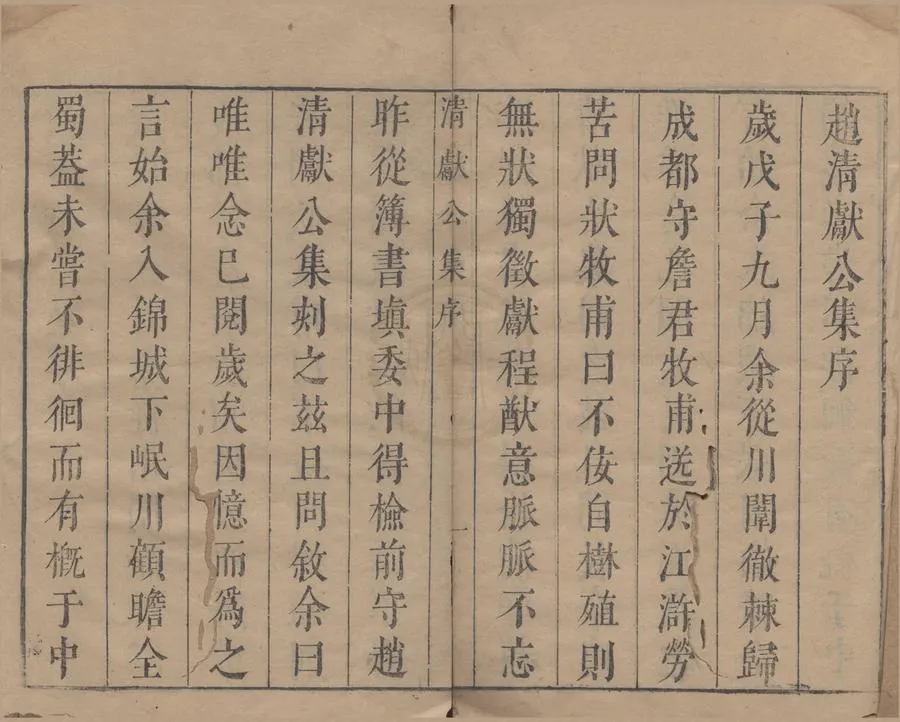 趙清獻公集序
歲戊子九月余從川闈徹棘歸
成都守詹君牧甫送於江滸勞
苦問狀牧甫曰不佞自樹殖則
無狀獨徵獻程猷意脈脈不忘
清獻公集序 一
昨從簿書填委中得檢前守趙
清獻公集刻之茲且問敘余曰
唯唯念已閱歲矣因憶而為之
言始余入錦城下岷川顧瞻全
蜀葢未嘗不徘徊而有概于中